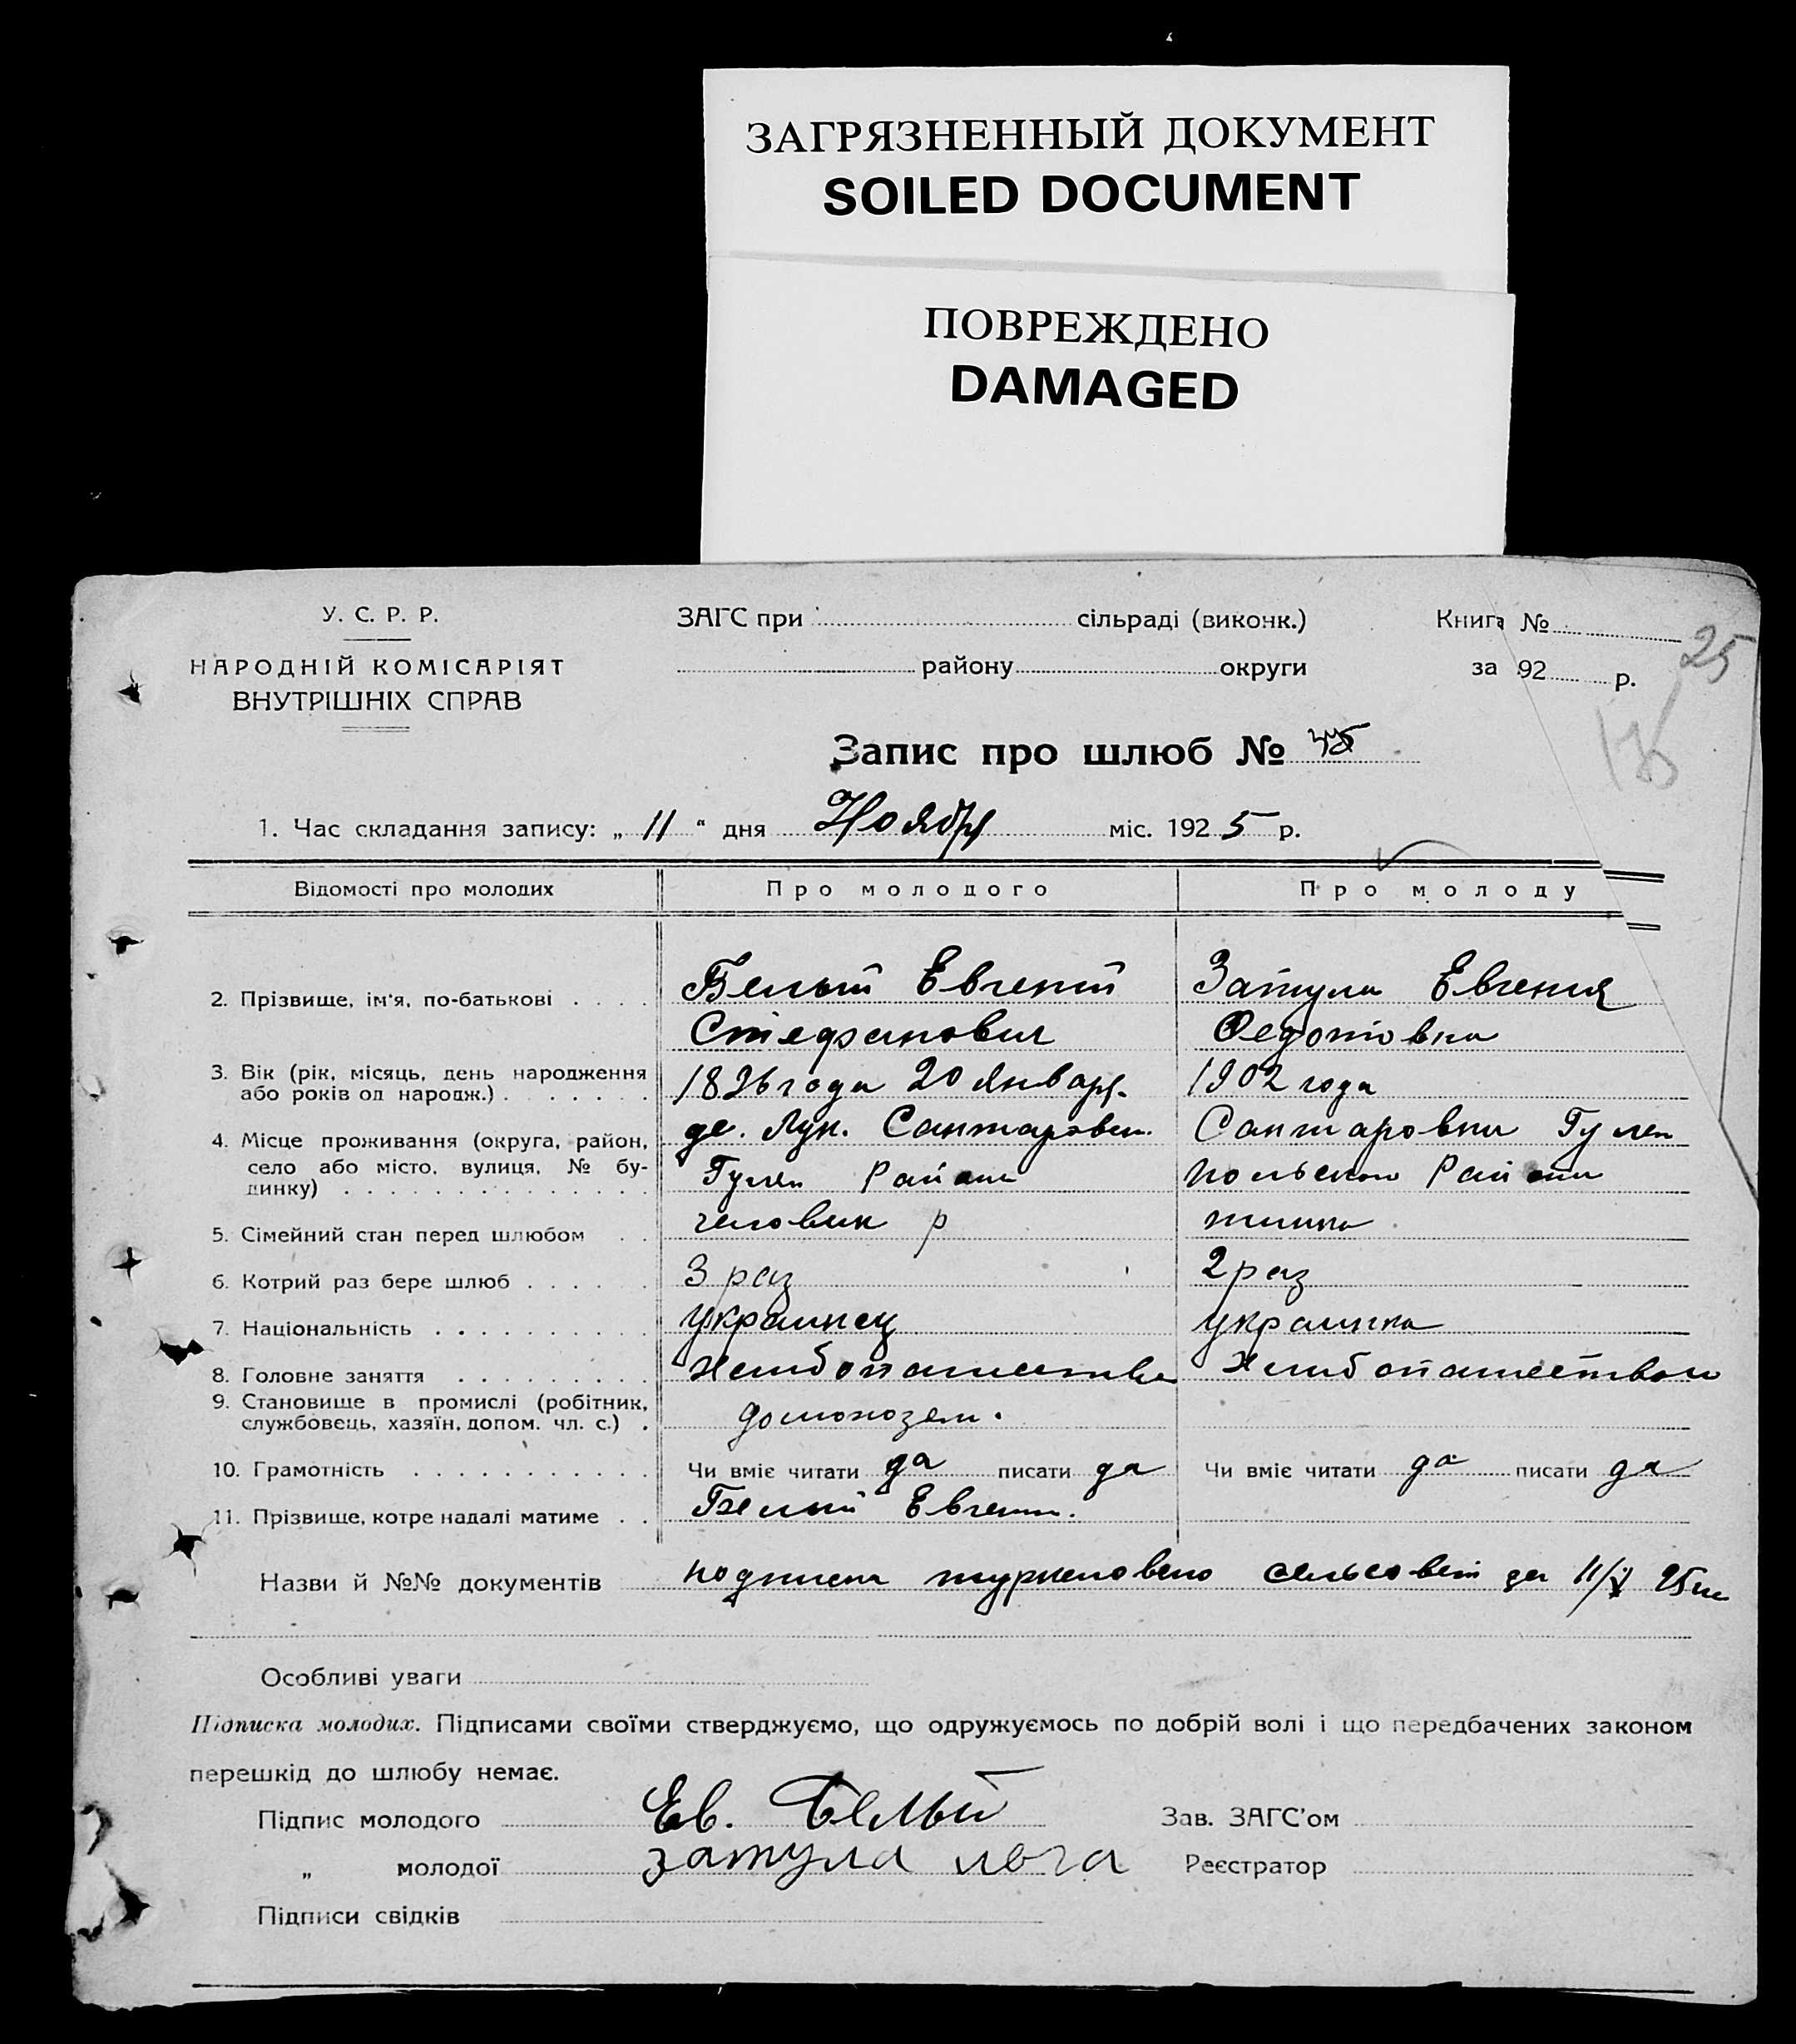 ЗАГРЯЗНЕННЫЙ ДОКУМЕНТ
SOILED DOCUMENT
ПОВРЕЖДЕНО
DAMAGED
У. С. Р. Р.
НАРОДНІЙ КОМІСАРІЯТ
ВНУТРІШНІХ СПРАВ
ЗАГС при сільраді (виконк.)
району округи
Книга №
за 192 р.
25
Запис про шлюб №
1. Час складання запису: „ 11 “ дня Ноября міс. 192 5 р.
Відомості про молодих Про молодого Про молоду
2. Прізвище, ім'я, по-батькові . . . . Белый Евгений Затула Евгения
Стефанович Федотовна
3. Вік (рік, місяць, день народження
або років од народж.) . . . . . . . 1896 года 20 Января. 1902 года
4. Місце проживання (округа, район,
село або місто, вулиця, № бу-
динку) . . . . . . . . . . . . . .
Сантаровка Гуляй
Гуляй Района польского Района
5. Сімейний стан перед шлюбом . .
6. Котрий раз бере шлюб . . . . . . 3 раз 2 раз
7. Національність . . . . . . . . . . украинец украинка
8. Головне заняття . . . . . . . . .
9. Становище в промислі (робітник,
службовець, хазяїн, допом. чл. с.) .
10. Грамотність . . . . . . . . . . . Чи вміє читати да писати да Чи вміє читати да писати да
11. Прізвище, котре надалі матиме . . Белый Евгени.
Назви й №№ документів сельсовет
Особливі уваги
Підписка молодих. Підписами своїми стверджуємо, що одружуємось по добрій волі і що передбачених законом
перешкід до шлюбу немає.
Підпис молодого Ев. Белый Зав. ЗАГС'ом
„ молодої затула Реєстратор
Підписи свідків